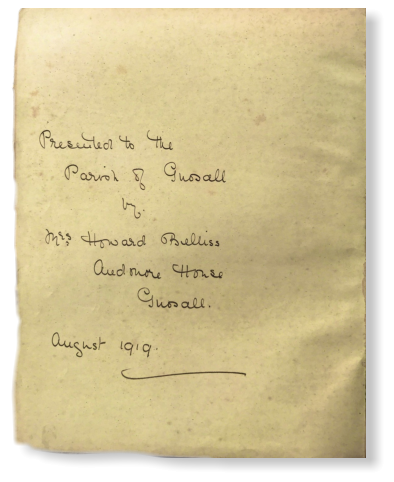 Presented to the
Parish of Gnosall
by.
Mrs Howard Belliss
Audmore House
Gnosall.
August 1919.